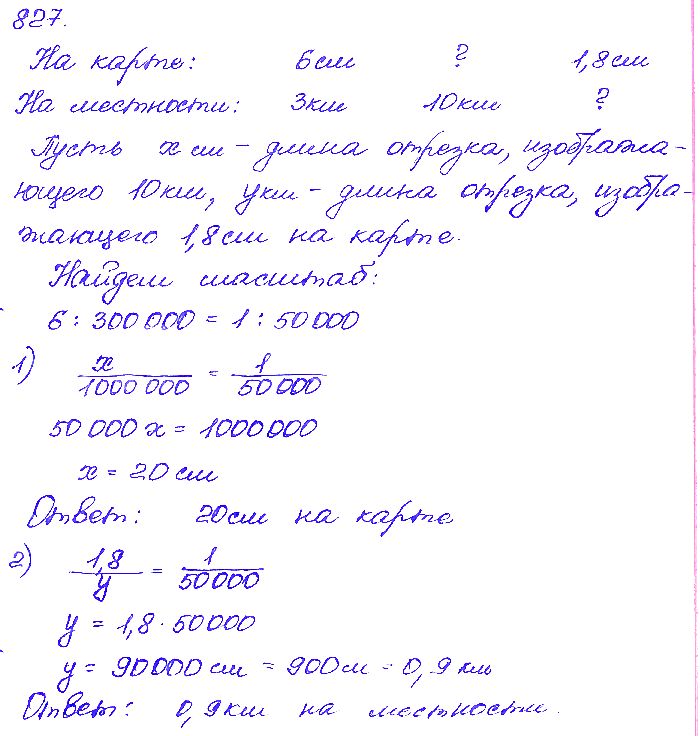 827.
На карте: 6см ? 1,8см
На местности: 3км 10км ?
Пусть x см - длина отрезка, изобража-
ющего 10км, y км - длина отрезка, изобра-
жающего 1,8см на карте.
Найдем масштаб:
6 : 300 000 = 1 : 50 000
1) x / 1000 000 = 1 / 50 000
50 000 x = 1000 000
x = 20 см
Ответ: 20см на карте
2) 1,8 / y = 1 / 50 000
y = 1,8 · 50000
y = 90000 см = 900м = 0,9 км
Ответ: 0,9км на местности.